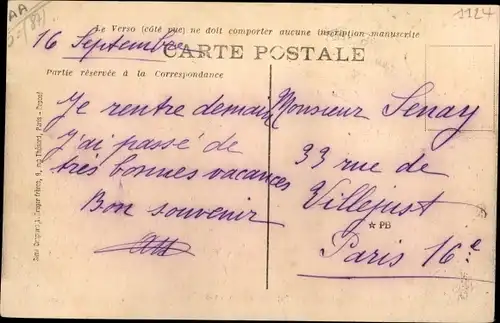 AA
1124
Le Verso (côté vue) ne doit comporter aucune inscription manuscrite
16 Septembre
CARTE POSTALE
Partie réservée à la Correspondance
Je rentre demain
J'ai passé de
très bonnes vacances
Bon souvenir
Monsieur Senay
33 rue de
Villejust
★ PB
Paris 16e